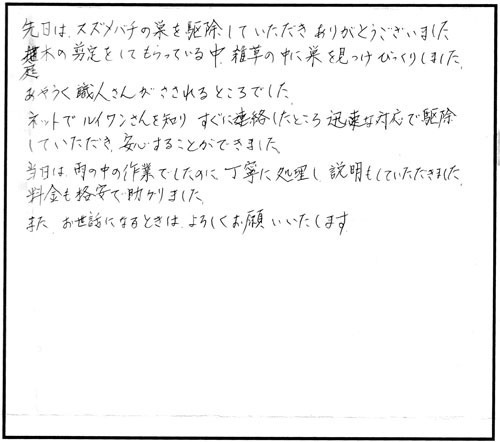 先日は、スズメバチの巣を駆除していただきありがとうございました
庭木の剪定をしてもらっている中、雑草の中に巣を見つけびっくりしました。
あやうく職人さんがさされるところでした。
ネットでルイワンさんを知り すぐに連絡したところ迅速な対応で駆除
していただき、安心することができました。
当日は、雨の中の作業でしたのに 丁寧に処理し 説明もしていただきました。
料金も格安で助かりました。
また、お世話になるときは、よろしくお願いいたします